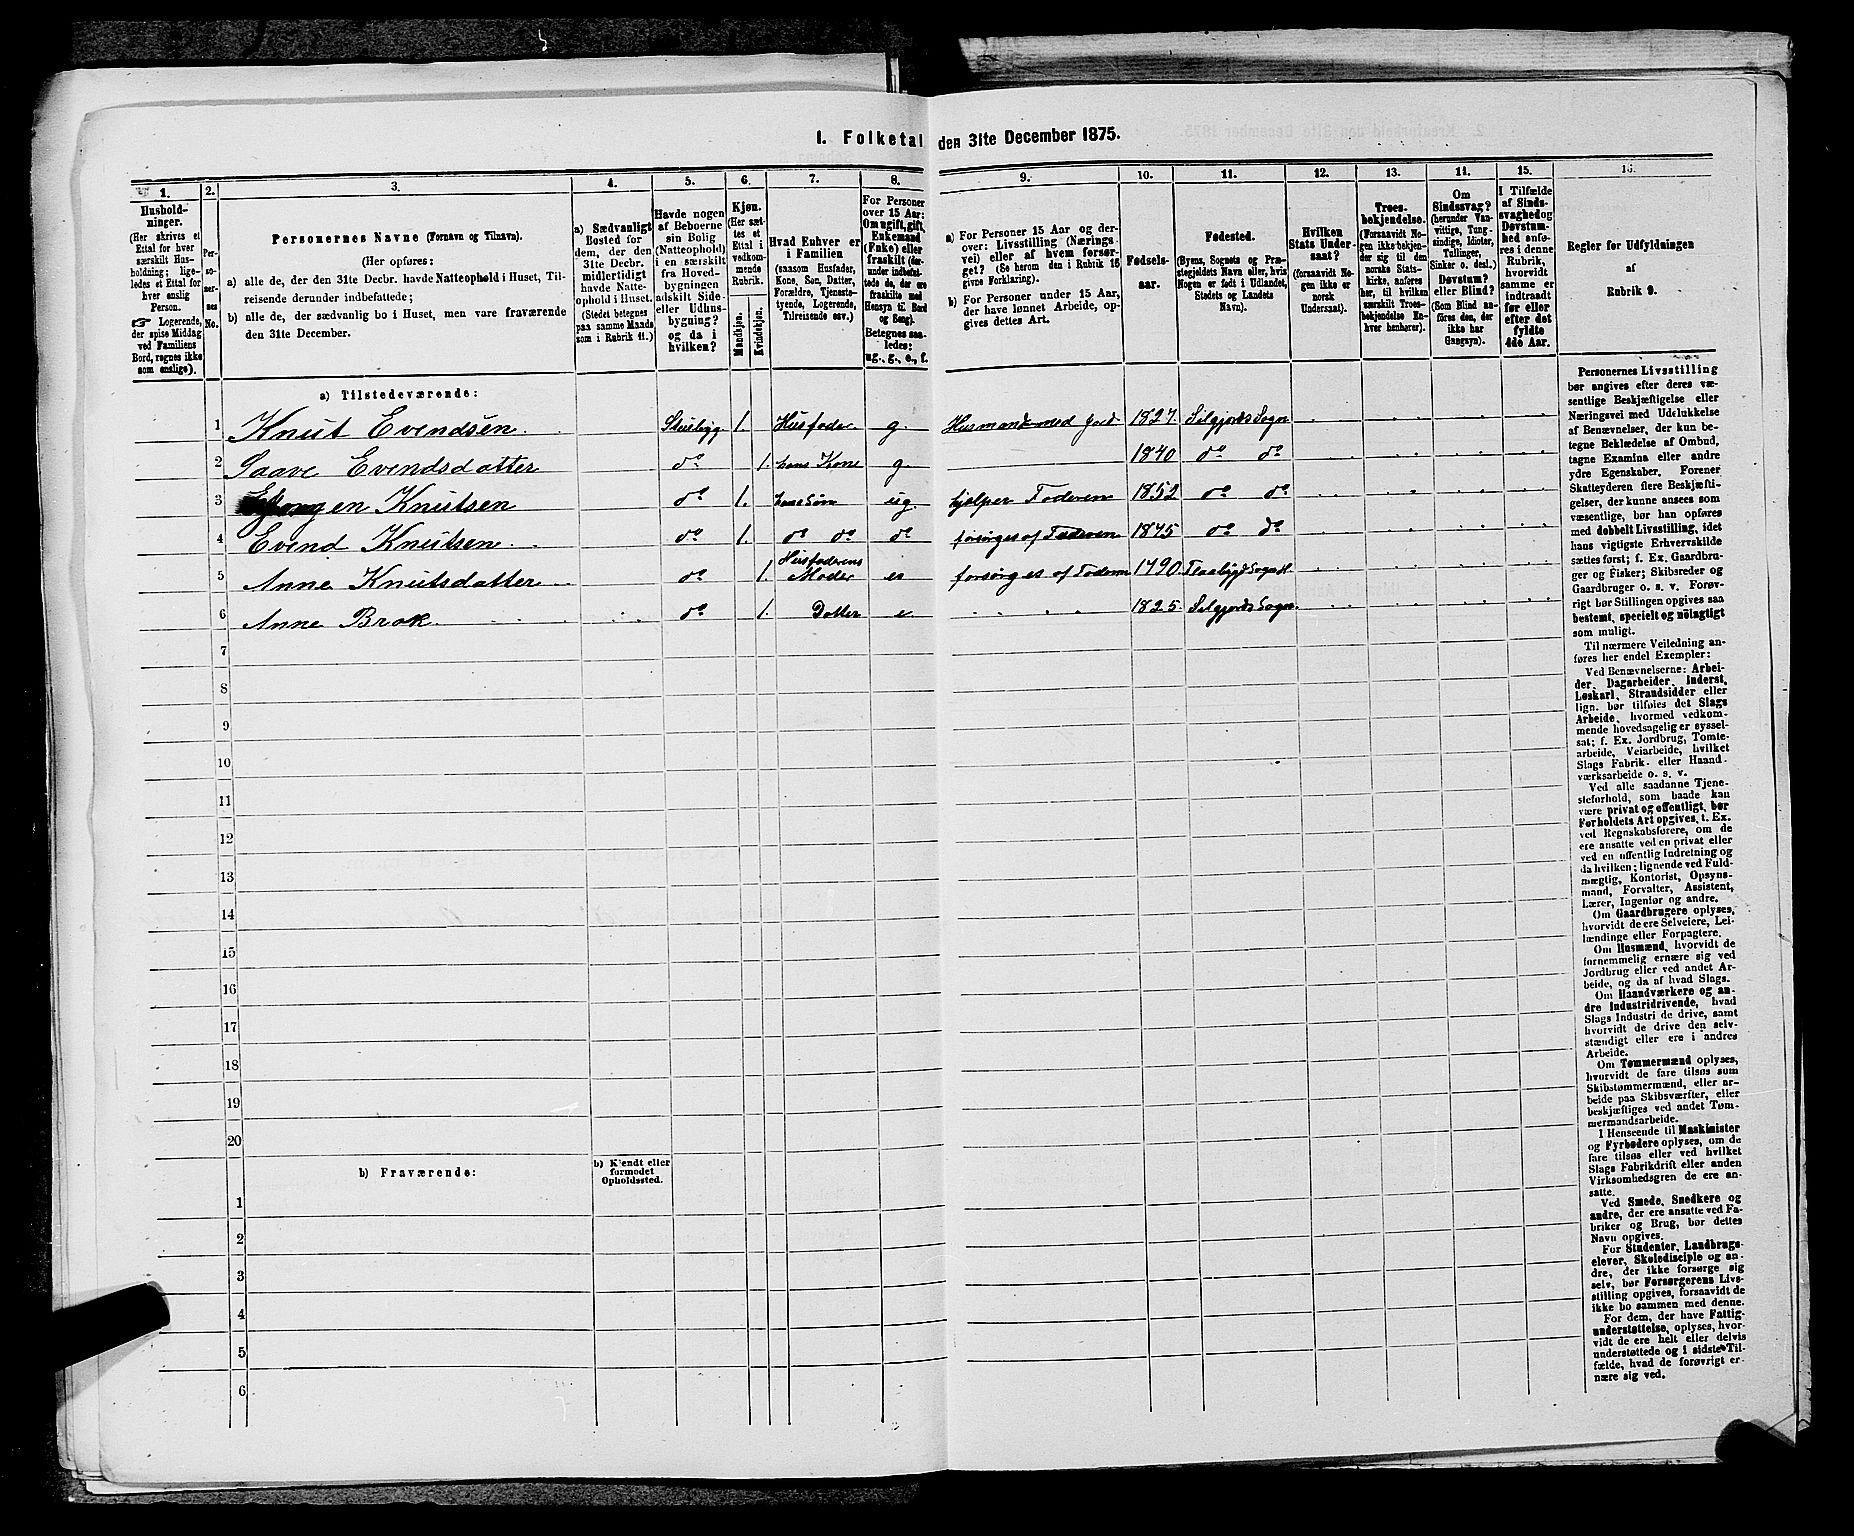 I. Folketal den 31te December 1875.
1. 2. 3. 4. 5. 6. 7. 8. 9. 10. 11. 12. 13. 14. 15. 16.
Husholdninger.
(Her skrives et
Ettal for hver
særskilt Husholdning;
ligeledes et Ettal for
hver enslig
Person.
☞ Logerende,
der spise Middag
ved Familiens
Bord, regnes ikke
som enslige).
Personernes No.
Personernes Navne (Fornavn og Tilnavn).
(Her opføres:
a) alle de, der den 31te Decbr. havde Natteophold i Huset, Tilreisende
derunder indbefattede;
b) alle de, der sædvanlig bo i Huset, men vare fraværende
den 31te December.
a) Sædvanligt
Bosted for
dem, der den
31te Decbr.
midlertidigt
havde Natteophold
i Huset.
(Stedet betegnes
paa samme Maade
som i Rubrik 11.)
Havde nogen
af Beboerne
sin Bolig
(Natteophold)
i en særskilt
fra Hovedbygningen
adskilt Side-
eller Udhusbygning?
og da i
hvilken?
Kjøn.
(Her sættes
et
Ettal i
vedkommende
Rubrik.
Mandkjøn.
Kvindekjøn.
Hvad Enhver er
i Familien
(saasom Husfader,
Kone, Søn, Datter,
Forældre, Tjenestetyende,
Logerende,
Tilreisende osv.)
For Personer
over 15 Aar:
Om ugift, gift,
Enkemand
(Enke) eller
fraskilt (derunder
indbefattede
de, der ere
fraskilte med
Hensyn til Bord
og Seng).
Betegnes saaledes:
ug., g., e., f.
a) For Personer 15 Aar og derover:
Livsstilling (Næringsvei)
eller af hvem forsørget?
(Se herom den i Rubrik 16
givne Forklaring).
b) For Personer under 15 Aar,
der have lønnet Arbeide, opgives
dettes Art.
Fødselsaar.
Fødested.
(Byens, Sognets og Præstegjeldets
Navn eller, hvis
Nogen er født i Udlandet,
Stedets og Landets
Navn).
Hvilken
Stats Undersaat?
(forsaavidt Nogen
ikke er
norsk
Undersaat).
Troesbekjendelse.
(Forsaavidt Nogen
ikke bekjender
sig til den
norske Statskirke,
anføres
her, til hvilken
særskilt Troesbekjendelse
Enhver
henhører).
Om
Sindssvag?
(herunder Vanvittige,
Tungsindige,
Idioter,
Tullinger,
Sinker o. desl.)
Døvstum?
eller Blind?
(Som Blind anføres
den, der
ikke har
Gangsyn).
I Tilfælde
af Sindssvaghed
og
Døvstumhed
anføres
i denne
Rubrik,
hvorvidt
samme er
indtraadt
før eller
efter det
fyldte
4de Aar.
Regler for Udfyldningen
af
Rubrik 9.
a) Tilstedeværende:
1 Knut Evendsen Stuebyg 1. Husfader g. Husmand med Jord 1827. Silgjords Sogn
2 Saave Evendsdatter do 1. hans Kone g 1840 do do
3 Knutsen do 1. hans Søn ug. hjelper Faderen 1852 do do
4 Evend Knutsen do 1. do do do forsørges af Faderen 1875 do do
5 Anne Knutsdatter do 1. Husfaderens Moder e forsørges af Faderen 1790
6 Anne Brok do 1. Datter e 1825. Silgjords Sogn
7
8
9
10
11
12
13
14
15
16
17
18
19
20
b) Fraværende:
b) Kjendt eller
formodet
Opholdssted.
1
2
3
4
5
6
Personernes Livsstilling
bør angives efter deres væsentlige
Beskjæftigelse eller
Næringsvei med Udelukkelse
af Benævnelser, der kun betegne
Beklædelse af Ombud,
tagne Examina eller andre
ydre Egenskaber. Forener
Skatteyderen flere Beskjæftigelser,
der kunne ansees som
væsentlige, bør han opføres
med dobbelt Livsstilling, idet
hans vigtigste Erhvervskilde
sættes først; f. Ex. Gaardbruger
og Fisker; Skibsreder og
Gaardbruger o. s. v. Forøvrigt
bør Stillingen opgives saa
bestemt, specielt og nöiagtigt
som muligt.
Til nærmere Veiledning anføres
her endel Exempler:
Ved Benævnelserne: Arbeider,
Dagarbeider, Inderst,
Løskarl, Strandsidder eller
lign. bør tilføies det Slags
Arbeide, hvormed vedkommende
hovedsagelig er sysselsat;
f. Ex. Jordbrug, Tomtearbeide,
Veiarbeide, hvilket
Slags Fabrik- eller Haandværksarbeide
o. s. v.
Ved alle saadanne Tjenesteforhold,
som baade kan
være privat og offentligt, bør
Forholdets Art opgives, t. Ex.
ved Regnskabsførere, om de
ere ansatte ved en privat eller
ved en offentlig Indretning og
da hvilken; lignende ved Fuldmægtig,
Kontorist, Opsynsmand,
Forvalter, Assistent,
Lærer, Ingeniør og andre.
Om Gaardbrugere oplyses,
hvorvidt de ere Selveiere, Leilændinge
eller Forpagtere.
Om Husmænd, hvorvidt de
fornemmelig ernære sig ved
Jordbrug eller ved andet Arbeide,
og da af hvad Slags.
Om Haandværkere og andre
Industridrivende, hvad
Slags Industri de drive, samt
hvorvidt de drive den selvstændigt
eller ere i andres
Arbeide.
Om Tømmermænd oplyses,
hvorvidt de fare tilsøs som
Skibstømmermænd, eller arbeide
paa Skibsværfter, eller
beskjæftiges ved andet Tømmermandsarbeide.
I Henseende til Maskinister
og Fyrbødere oplyses, om de
fare tilsøs eller ved hvilket
Slags Fabrikdrift eller anden
Virksomhedsgren de ere ansatte.
Ved Smede, Snedkere og
andre, der ere ansatte ved Fabriker
og Brug, bør dettes
Navn opgives.
For Studenter, Landbrugselever,
Skoledisciple og andre,
der ikke forsørge sig
selv, bør Forsørgerens Livsstilling
opgives, forsaavidt de
ikke bo sammen med denne.
For dem, der have Fattigunderstøttelse,
oplyses, hvorvidt
de ere helt eller delvis
understøttede og i sidste Tilfælde,
hvad de forøvrigt ernære
sig ved.